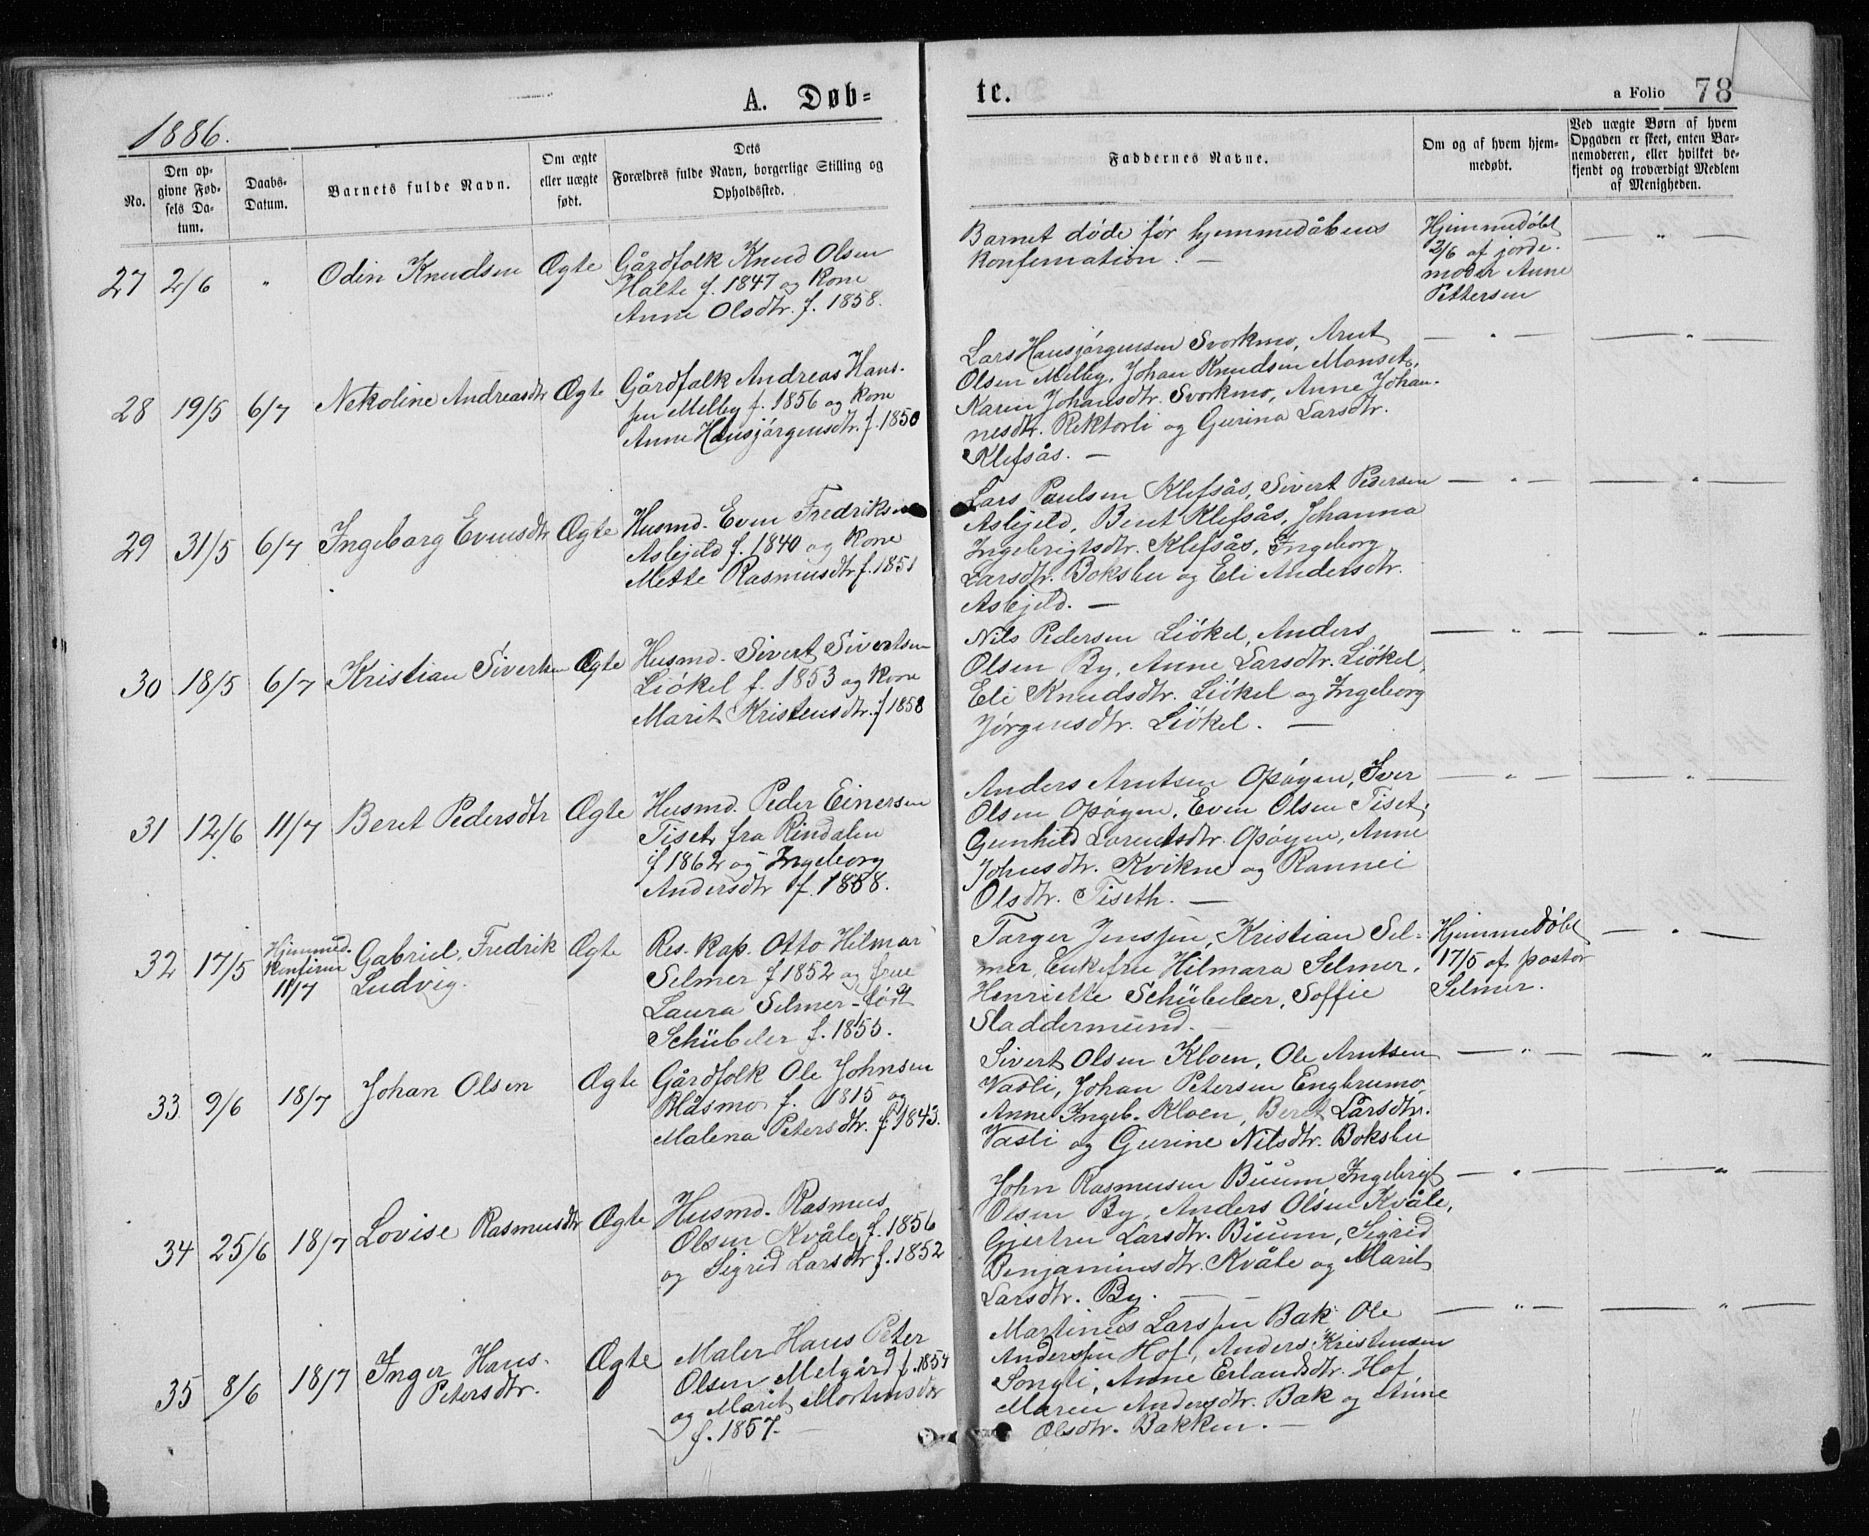 1886.
A. Døb=
te.
a Folio 78
No.
Den op-
givne Fød-
sels Da-
tum.
Daabs-
Datum.
Barnets fulde Navn.
Om ægte
eller uægte
født.
Dets
Forældres fulde Navn, borgerlige Stilling og
Opholdssted.
Faddernes Navne.
Om og af hvem hjem-
medøbt.
Ved uægte Børn af hvem
Opgaven er skeet, enten Bar-
nemoderen, eller hvilket be-
kjendt og troværdigt Medlem
af Menigheden.
27 2/6 " Odin Knudsen Ægte
Gårdfolk Knud Olsen
Halte f. 1847 og kone
Anne Olsdtr. f. 1858.
Barnet døde før hjemmedåbens
konfirmation. —
Hjemmedøbt
2/6 af jorde-
moder Anne
Pettersen
— " —
28 19/5 6/7 Nekoline Andreasdtr Ægte
Gårdfolk Andreas Hans-
sen Melby f. 1856 og kone
Anne Hansjørgensdtr. f. 1850
Lars Hansjørgensen Svorkmo, Arnt
Olsen Melby, Johan Knudsen Monset,
Karen Johansdtr. Svorkmo, Anne Johan-
nesdtr. Rektorli og Gurina Larsdtr.
Klefsås. —
— " — — " —
29 31/5 6/7 Ingeborg Evensdtr Ægte
Husmd. Even Fredriksen
Asbjeld f. 1840 og kone
Mette Rasmusdtr f. 1851
Lars Paulsen Klefsås, Sivert Pedersen
Asbjeld, Bent Klefsås, Johanna
Ingebrigtsdtr. Klefsås, Ingeborg
Larsdtr. Boksbu og Eli Andersdtr.
Asbjeld. —
— " — — " —
30 18/5 6/7 Kristian Sivertsen Ægte
Husmd. Sivert Sivertsen
Liökel f. 1853 og kone
Marit Kristensdtr. f 1858
Nils Pedersen Liökel, Anders
Olsen By, Anne Larsdtr. Liökel,
Eli Knudsdtr. Liökel og Ingeborg
Jørgensdtr. Liökel. —
— " — — " —
31 12/6 11/7 Beret Pedersdtr Ægte
Husmd. Peder Einersen
Tiset fra Rindalen
f 1862 og Ingeborg
Andersdtr f. 1858.
Anders Arntsen Opøyen, Iver
Olsen Opøyen, Even Olsen Tiset,
Gunhild Lorentsdtr. Opøyen, Anne
Johnsdtr. Kvikne og Rannei
Olsdtr. Tiseth. —
— " — — " —
32 17/5
Hjemmed.
konfirm
11/7
Gabriel, Fredrik
Ludvig.
Ægte
Res. kap. Otto Hilmar
Selmer f 1852 og frue
Laura Selmer født
Schübeler f. 1855.
Torger Jenssen, Kristian Sel-
mer, Enkefru Hilmara Selmer,
Henriette Schübeler, Soffie
Sladdermund. —
Hjemmedøbt
17/5 af pastor
Selmer.
— " —
33 9/6 18/7 Johan Olsen Ægte
Gårdfolk Ole Johnsen
Blåsmo f. 1815 og
Malena Petersdtr. f. 1843.
Sivert Olsen Kloen, Ole Arntsen
Vasli, Johan Petersen Engbrumo,
Anne Ingeb. Kloen, Beret Larsdtr.
Vasli og Gurine Nilsdtr. Boksbu
— " — — " —
34 25/6 18/7 Lovise Rasmusdtr Ægte
Husmd. Rasmus
Olsen Kvåle f. 1856
og Sigrid Larsdtr f. 1852
John Rasmussen Buum Ingebrigt
Olsen By, Anders Olsen Kvåle,
Gjertru Larsdtr. Buum, Sigrid
Benjaminsdtr. Kvåle og Marit
Larsdtr. By. —
— " — — " —
35 8/6 18/7
Inger Hans-
Petersdtr.
Ægte
Maler Hans Peter
Olsen Melgård f. 1854
og Marit Mortensdtr
f. 1857. —
Martinus Larssen Bak Ole
Anderssen Hof, Anders Kristensen
Songli, Anne Erlandsdtr. Hof
Maren Andersdtr. Bak og Anne
Olsdtr. Bakken. —
— " — — " —